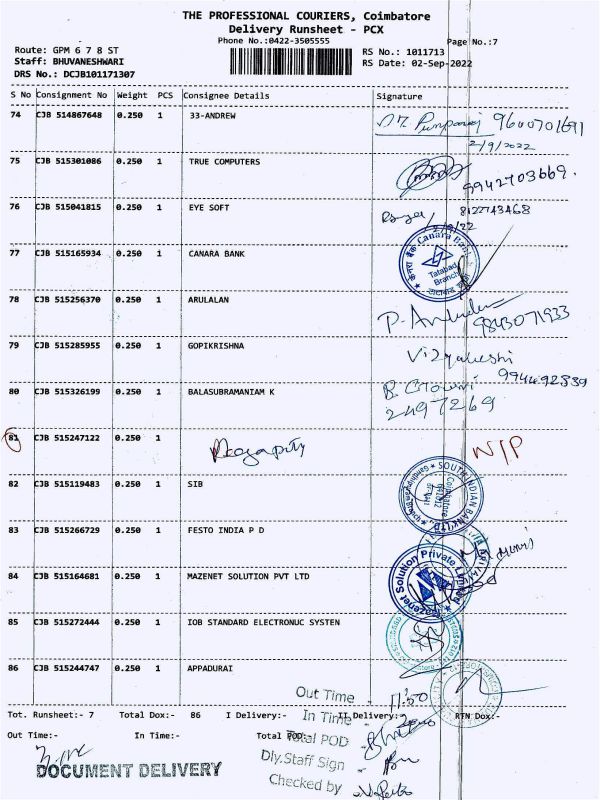 THE PROFESSIONAL COURIERS, Coimbatore
Delivery Runsheet - PCX
Phone No.:0422-3505555
Page No.:7
Route: GPM 6 7 8 ST
Staff: BHUVANESHWARI
DRS No.: DCJB101171307
RS No.: 1011713
RS Date: 02-Sep-2022
S No Consignment No Weight PCS Consignee Details Signature
74 CJB 514867648 0.250 1 33-ANDREW 9600701691
2/9/2022
75 CJB 515301086 0.250 1 TRUE COMPUTERS 9942703669.
76 CJB 515041815 0.250 1 EYE SOFT 8122743468
77 CJB 515165934 0.250 1 CANARA BANK
Canara Bank
Tatabad
Branch
78 CJB 515256370 0.250 1 ARULALAN 9843071933
79 CJB 515285955 0.250 1 GOPIKRISHNA
80 CJB 515326199 0.250 1 BALASUBRAMANIAM K B. Gowri
2497269
81 CJB 515247122 0.250 1 N/P
82 CJB 515119483 0.250 1 SIB
SOUTH INDIAN BANK LTD.
Coimbatore
83 CJB 515266729 0.250 1 FESTO INDIA P D
84 CJB 515164681 0.250 1 MAZENET SOLUTION PVT LTD
Mazenet Solution Private Limited
85 CJB 515272444 0.250 1 IOB STANDARD ELECTRONUC SYSTEN
86 CJB 515244747 0.250 1 APPADURAI
Tot. Runsheet:- 7 Total Dox:- 86 I Delivery:- II Delivery:- RTN Dox:-
Out Time:- In Time:- Total POD:-
Out Time - 11:50
In Time -
Total POD -
Dly.Staff Sign -
Checked by -
DOCUMENT DELIVERY